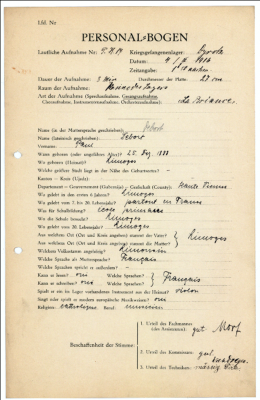 Lfd. Nr.
PERSONAL-BOGEN
Lautliche Aufnahme Nr.: Kriegsgefangenenlager:
Datum:
Zeitangabe:
Dauer der Aufnahme: 3 Min Durchmesser der Platte: 27 cm
Raum der Aufnahme:
Art der Aufnahme (Sprechaufnahme, Gesangsaufnahme,
Choraufnahme, Instrumentenaufnahme, Orchesteraufnahme): La Briance
Name (in der Muttersprache geschrieben):
Name (lateinisch geschrieben):
Vorname: Paul
Wann geboren (oder ungefähres Alter)? 25.
Wo geboren (Heimat)? Limoges
Welche größere Stadt liegt in der Nähe des Geburtsortes? -
Kanton — Kreis (Ujedz) -
Departement — Gouvernement (Gubernija) — Grafschaft (County) Haute Vienne
Wo gelebt in den ersten 6 Jahren? Limoges
Wo gelebt vom 7. bis 20. Lebensjahr? partout en France
Was für Schulbildung? école primaire
Wo die Schule besucht? Limoges
Wo gelebt vom 20. Lebensjahr? Limoges
Aus welchem Ort (Ort und Kreis angeben) stammt der Vater? } Limoges
Aus welchem Ort (Ort und Kreis angeben) stammt die Mutter?
Welchem Volksstamm angehörig? Limousin
Welche Sprache als Muttersprache? Français
Welche Sprachen spricht er außerdem? -
Kann er lesen? oui Welche Sprachen? } Français
Kann er schreiben? oui Welche Sprachen?
Spielt er ein im Lager vorhandenes Instrument aus der Heimat? violon
Singt oder spielt er modern europäische Musikweisen? oui
Religion: catholique Beruf:
Beschaffenheit der Stimme:
1. Urteil des Fachmannes
(des Assistenten): gut
2. Urteil des Kommissars: gut
3. Urteil des Technikers: